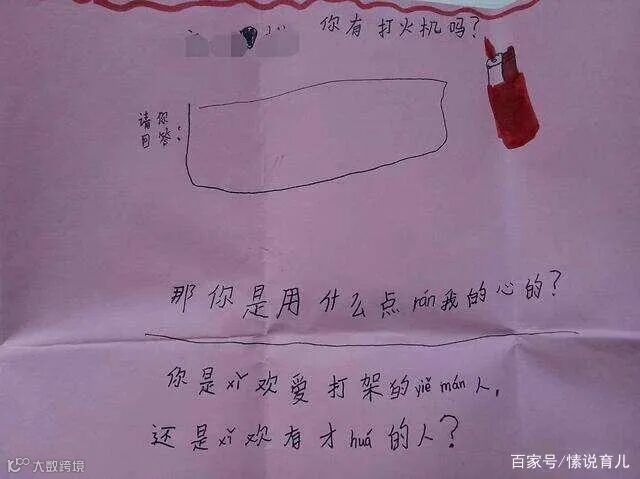 你有打火机吗？
请你
目答：
那你是用什么点rán我的心的？
你是xǐ欢爱打架的yiě mán人，
还是xǐ欢有才huá的人？
大数跨境
百家号/愫说育儿